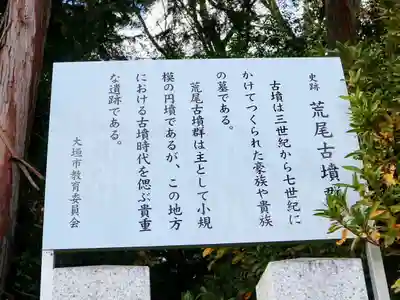 史跡 荒尾古墳群
古墳は三世紀から七世紀に
かけてつくられた豪族や貴族
の墓である。
荒尾古墳群は主として小規
模の円墳であるが、この地方
における古墳時代を偲ぶ貴重
な遺跡である。
大垣市教育委員会